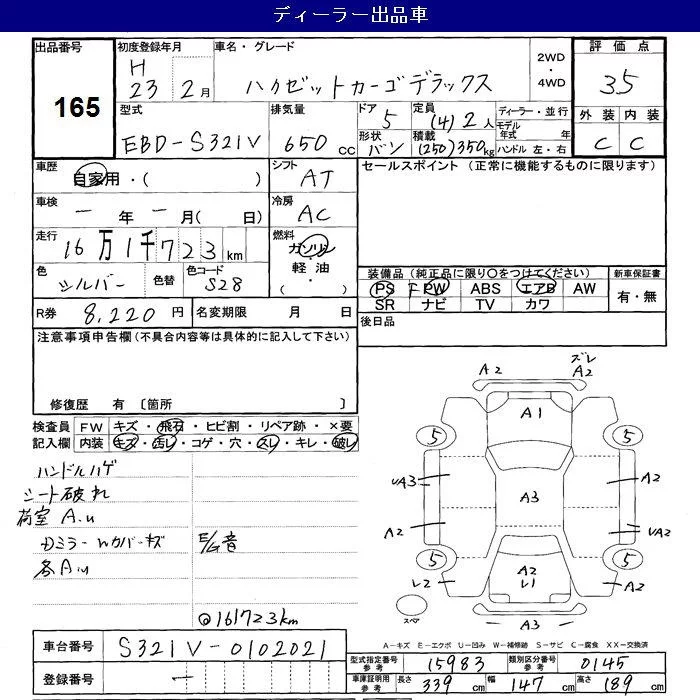 ディーラー出品車
出品番号 165
初度登録年月 H 23年 2月
車名・グレード ハイゼットカーゴデラックス
2WD・4WD
評価点 3.5
外装 内装
C C
型式 EBD-S321V
排気量 650cc
ドア 5
形状 バン
定員 (4)2人
積載 (250)350kg
ディーラー・並行
モデル年式 年
ハンドル 左・右
車歴 自家用・( )
シフト AT
車検 ー年ー月( 日)
冷房 AC
走行 16万1千723km
燃料 ガソリン 軽油 ( ・ )
色 シルバー
色替
色コード S28
R券 8,220円
名変期限 月 日
セールスポイント (正常に機能するものに限ります)
装備品(純正品に限り○をつけてください)
新車保証書
PS PW ABS エアB AW
有・無
SR ナビ TV カワ
後日品
注意事項申告欄(不具合内容等は具体的に記入して下さい)
修復歴 有 〔箇所 〕
検査員 FW キズ・飛石・ヒビ割・リペア跡・×要
記入欄 内装 キズ・汚レ・コゲ・穴・スレ・キレ・破レ
ハンドルハゲ
シート破れ
荷室 A.u
Dミラーwカバーキズ
各A.u
E/G音
@161723km
A2 ズレ A2
A1
5 5
UA3 A3 A2
A2 UA2
5 5
L2 A2 L1 A2
スペア A3
A-キズ E-エクボ U-凹み W-補修跡 S-サビ C-腐食 XX-交換済
車台番号 S321V-0102021
登録番号 ー
型式指定番号 参考 15983
類別区分番号 参考 0145
車庫証明用 参考 長さ 339cm 幅 147cm 高さ 189cm